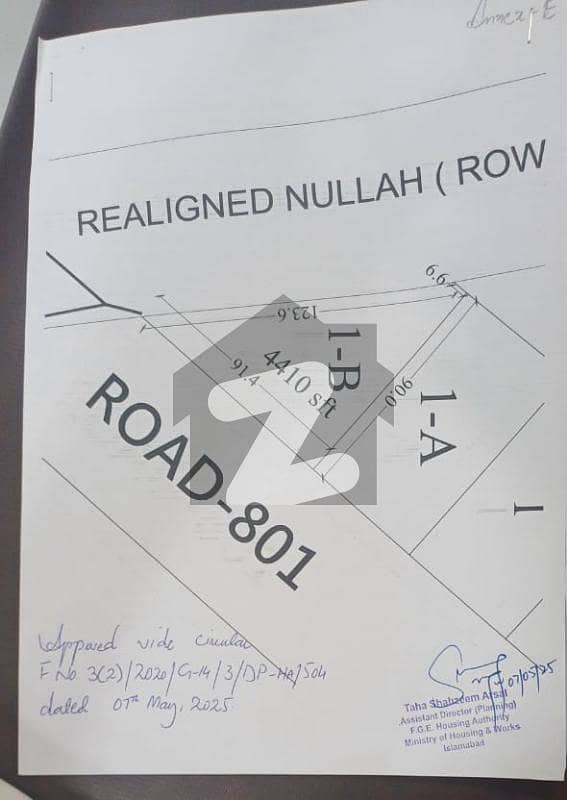 Annex-E
REALIGNED NULLAH ( ROW
6.6
123.6
1-B
4410 sft
91.4
90.0
1-A
1
ROAD-801
Appoved vide circular
F No 3(2)/2020/G-14/3/DP-HA/504
dated 07th May, 2025.
07/05/25
Taha Shahzeem Afsal
Assistant Director (Planning)
F.G.E. Housing Authority
Ministry of Housing & Works
Islamabad